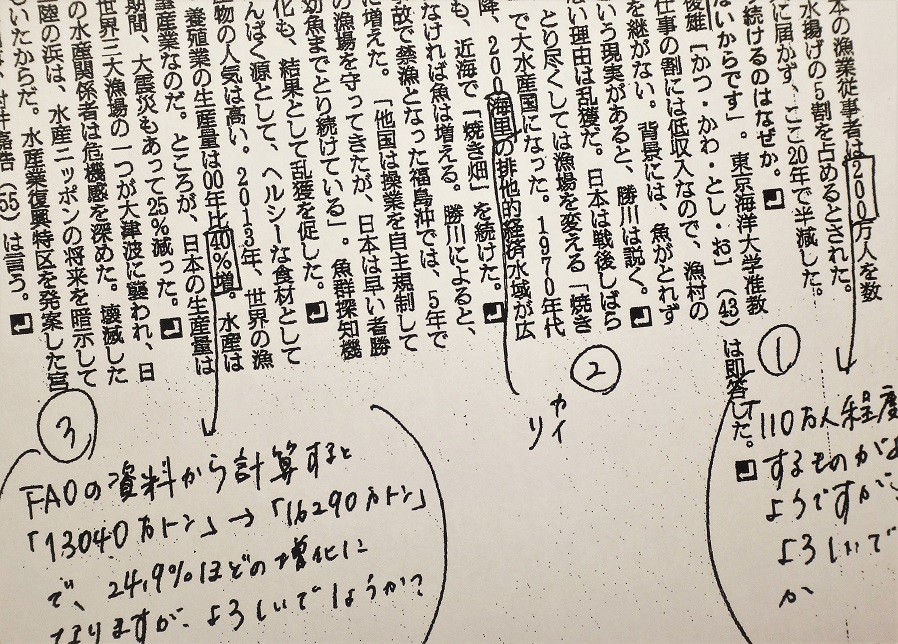 本の漁業従事者は200万人を数
水揚げの5割を占めるとされた。
に届かず、ここ20年で半減した。
続けるのはなぜか。
ないからです」。東京海洋大学准教
俊雄[かつ・かわ・とし・お](43)は即答した。
仕事の割には低収入なので、漁村の
を継がない。背景には、魚がとれず
いう現実があると、勝川は説く。
ない理由は乱獲だ。日本は戦後しばら
とり尽くしては漁場を変える「焼き
で大水産国になった。1970年代
降、200海里の排他的経済水域が広
も、近海で「焼き畑」を続けた。
なければ魚は増える。勝川によると、
故で禁漁となった福島沖では、5年で
に増えた。「他国は操業を自主規制して
の漁場を守ってきたが、日本は早い者勝
幼魚までとり続けている」。魚群探知機
化も、結果として乱獲を促した。
んぱく源として、ヘルシーな食材として
物の人気は高い。2013年、世界の漁
養殖業の生産量は00年比40%増。水産は
産業なのだ。ところが、日本の生産量は
期間、大震災もあって25%減った。
世界三大漁場の一つが大津波に襲われ、日
の水産関係者は危機感を深めた。壊滅した
陸の浜は、水産ニッポンの将来を暗示して
いたからだ。水産業復興特区を発案した宮
(55)は言う。
①
110万人程度
するものがよ
ようですが、
よろしいで
か
②
カイ
リ
③
FAOの資料から計算すると
「13040万トン」→「16290万トン」
で、24.9%ほどの増化に
なりますが、よろしいでしょうか?